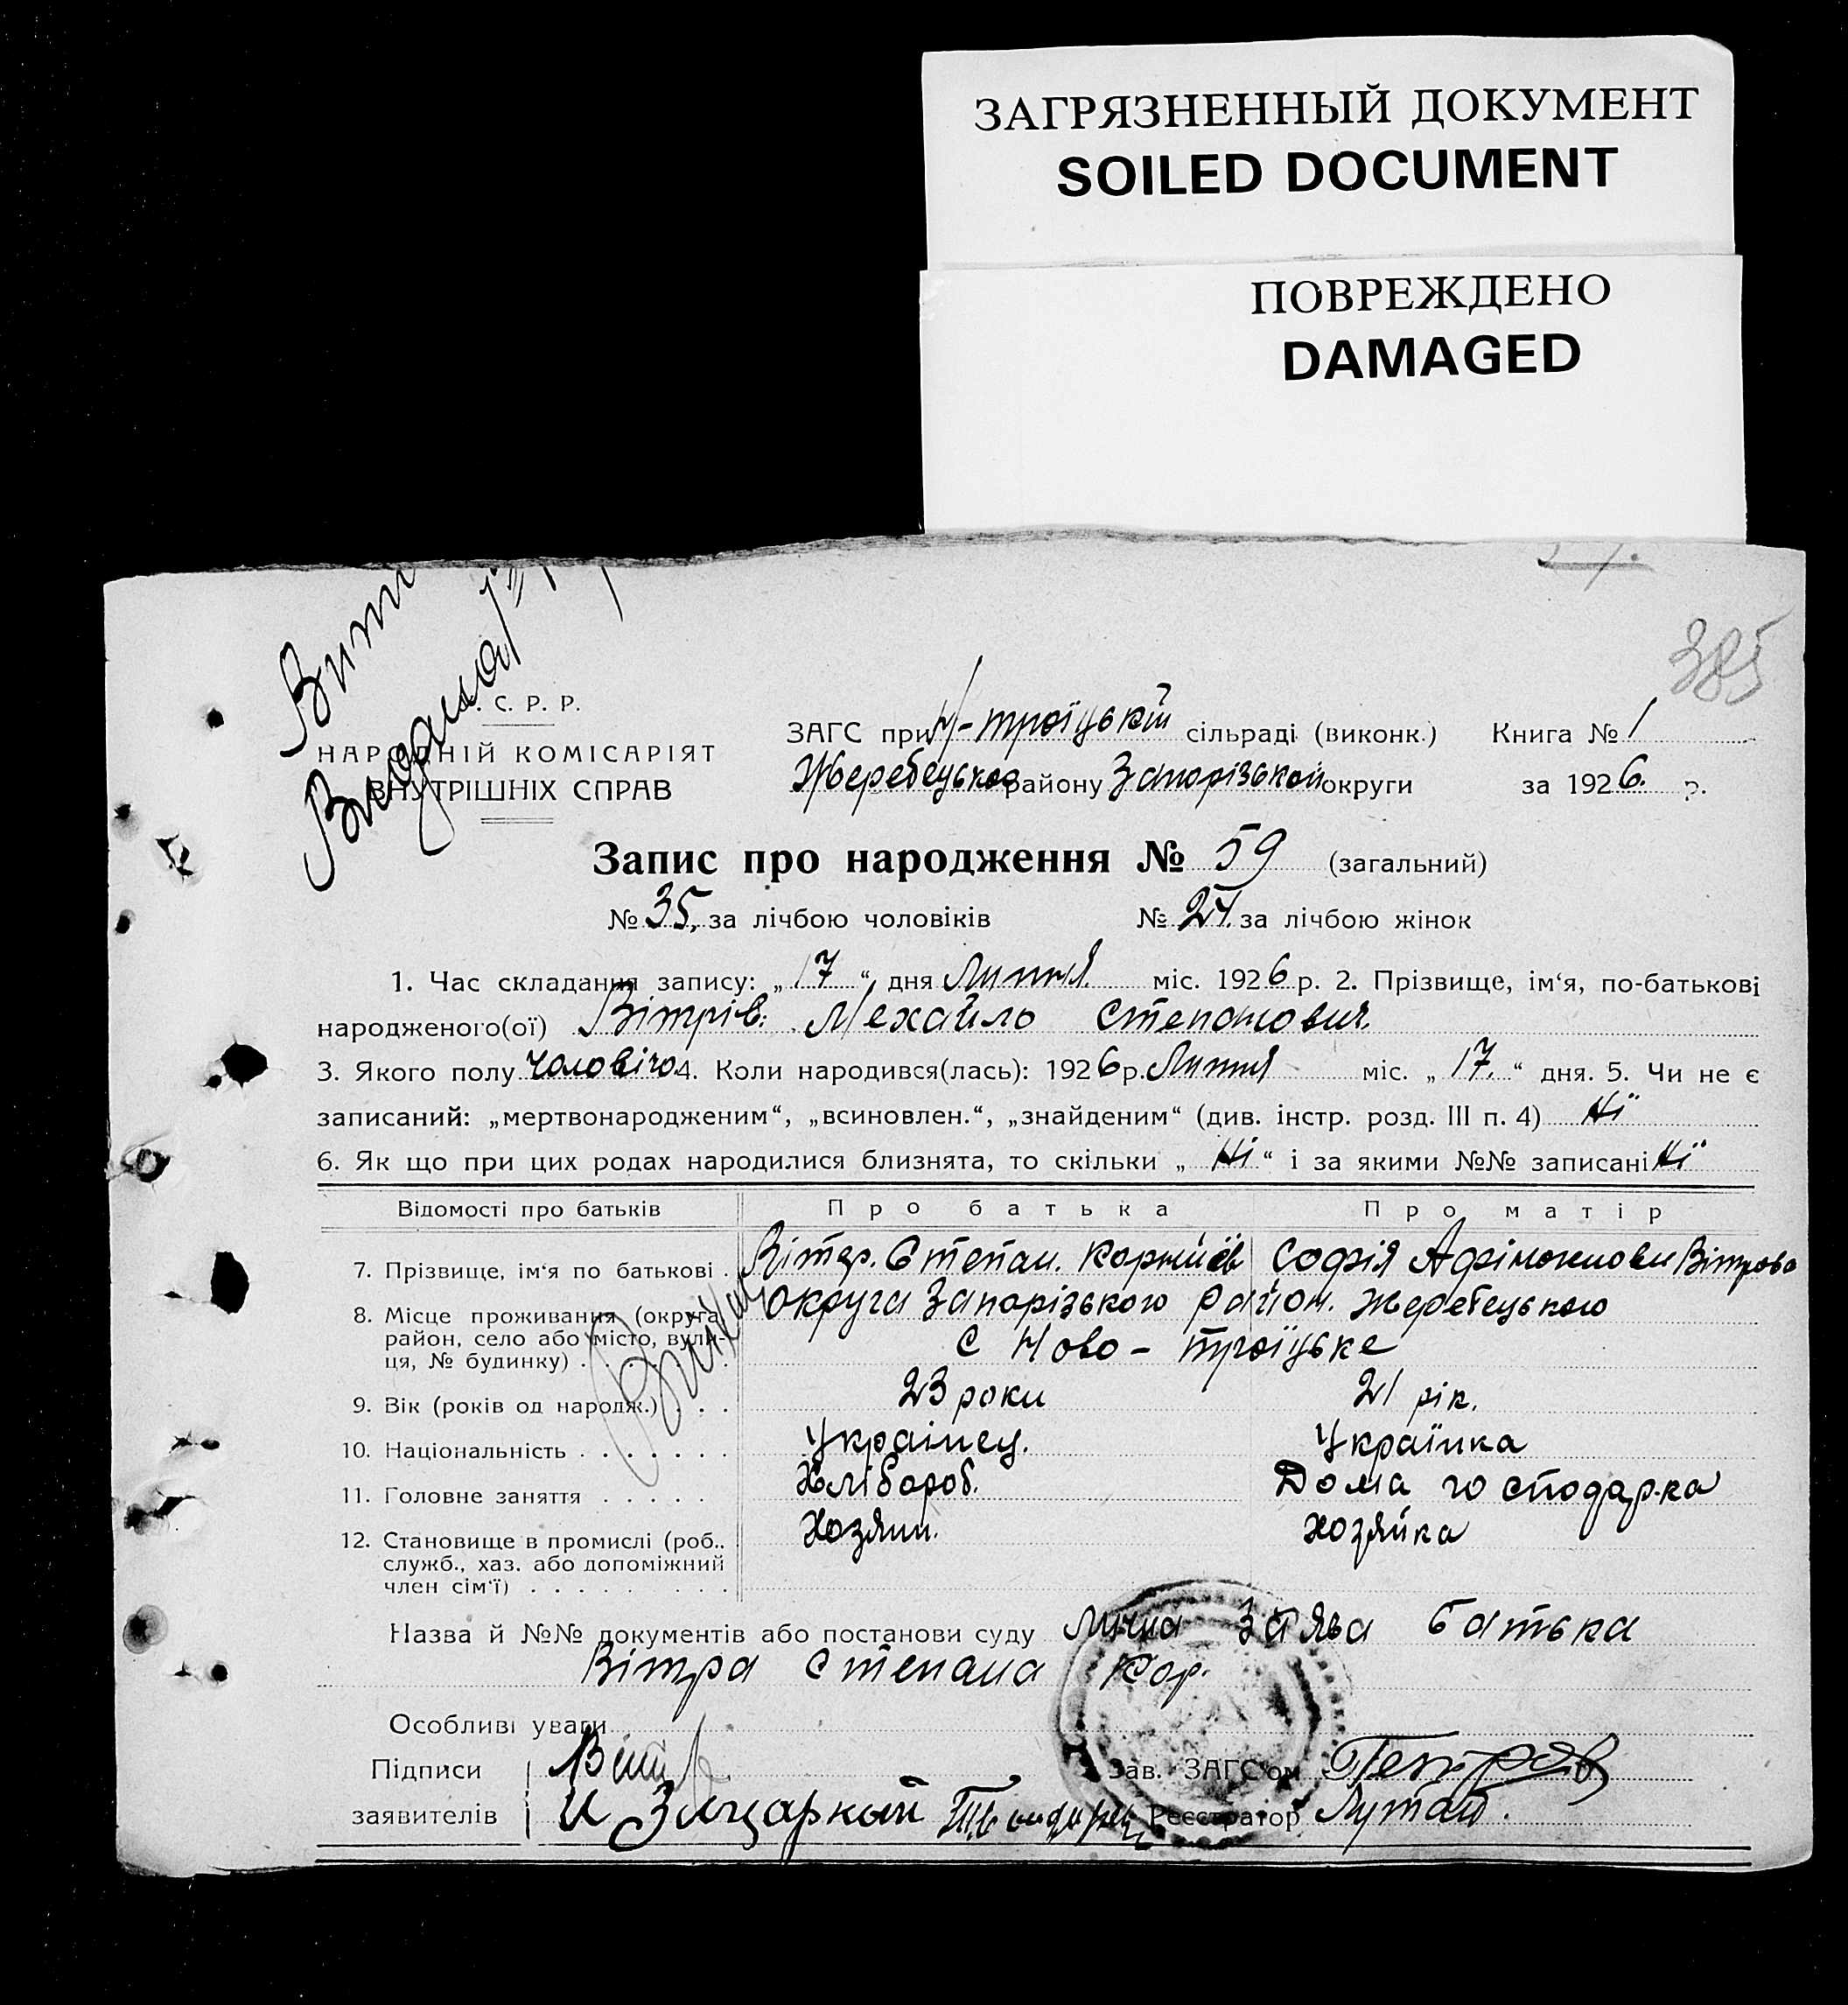 ЗАГРЯЗНЕННЫЙ ДОКУМЕНТ
SOILED DOCUMENT
ПОВРЕЖДЕНО
DAMAGED
385
С. Р. Р.
НАРОДНІЙ КОМІСАРІЯТ
ВНУТРІШНІХ СПРАВ
ЗАГС при Н-троїцькій сільраді (виконк.) Книга № 1
Жеребецького району Запорізької округи за 1926. р.
Запис про народження № 59 (загальний)
№ 35, за лічбою чоловіків № 24. за лічбою жінок
1. Час складання запису: „17“ дня Липня. міс. 1926 р. 2. Прізвище, ім‘я, по-батькові
народженого(ої) Вітрів. Мехайло Степанович.
3. Якого полу чоловічо 4. Коли народився(лась): 1926 р. Липня міс. „17.“ дня. 5. Чи не є
записаний: „мертвонародженим“, „всиновлен.“, „знайденим“ (див. інстр. розд. III п. 4) Ні
6. Як що при цих родах народилися близнята, то скільки „Ні“ і за якими №№ записані Ні
Відомості про батьків Про батька Про матір
7. Прізвище, ім‘я по батькові . Вітер. Степан. Корнійов Софія Вітрова
8. Місце проживання (округа, район, село або місто, вулиця, № будинку) . округа Запорізького район. Жеребецького
с Ново - троїцьке
9. Вік (років од народж.) . . . 23 роки 21 рік.
10. Національність . . . . . . . Українец. Українка
11. Головне заняття . . . . . Хлібороб. Дома господарка
12. Становище в промислі (роб., служб., хаз. або допоміжний член сім‘ї) . . . . . Хозяин. хозяйка
Назва й №№ документів або постанови суду Лична заява батька
Вітра Степана Кор.
Особливі уваги
Підписи Зав. ЗАГС‘ом Петров
заявителів Реєстратор Лутай.